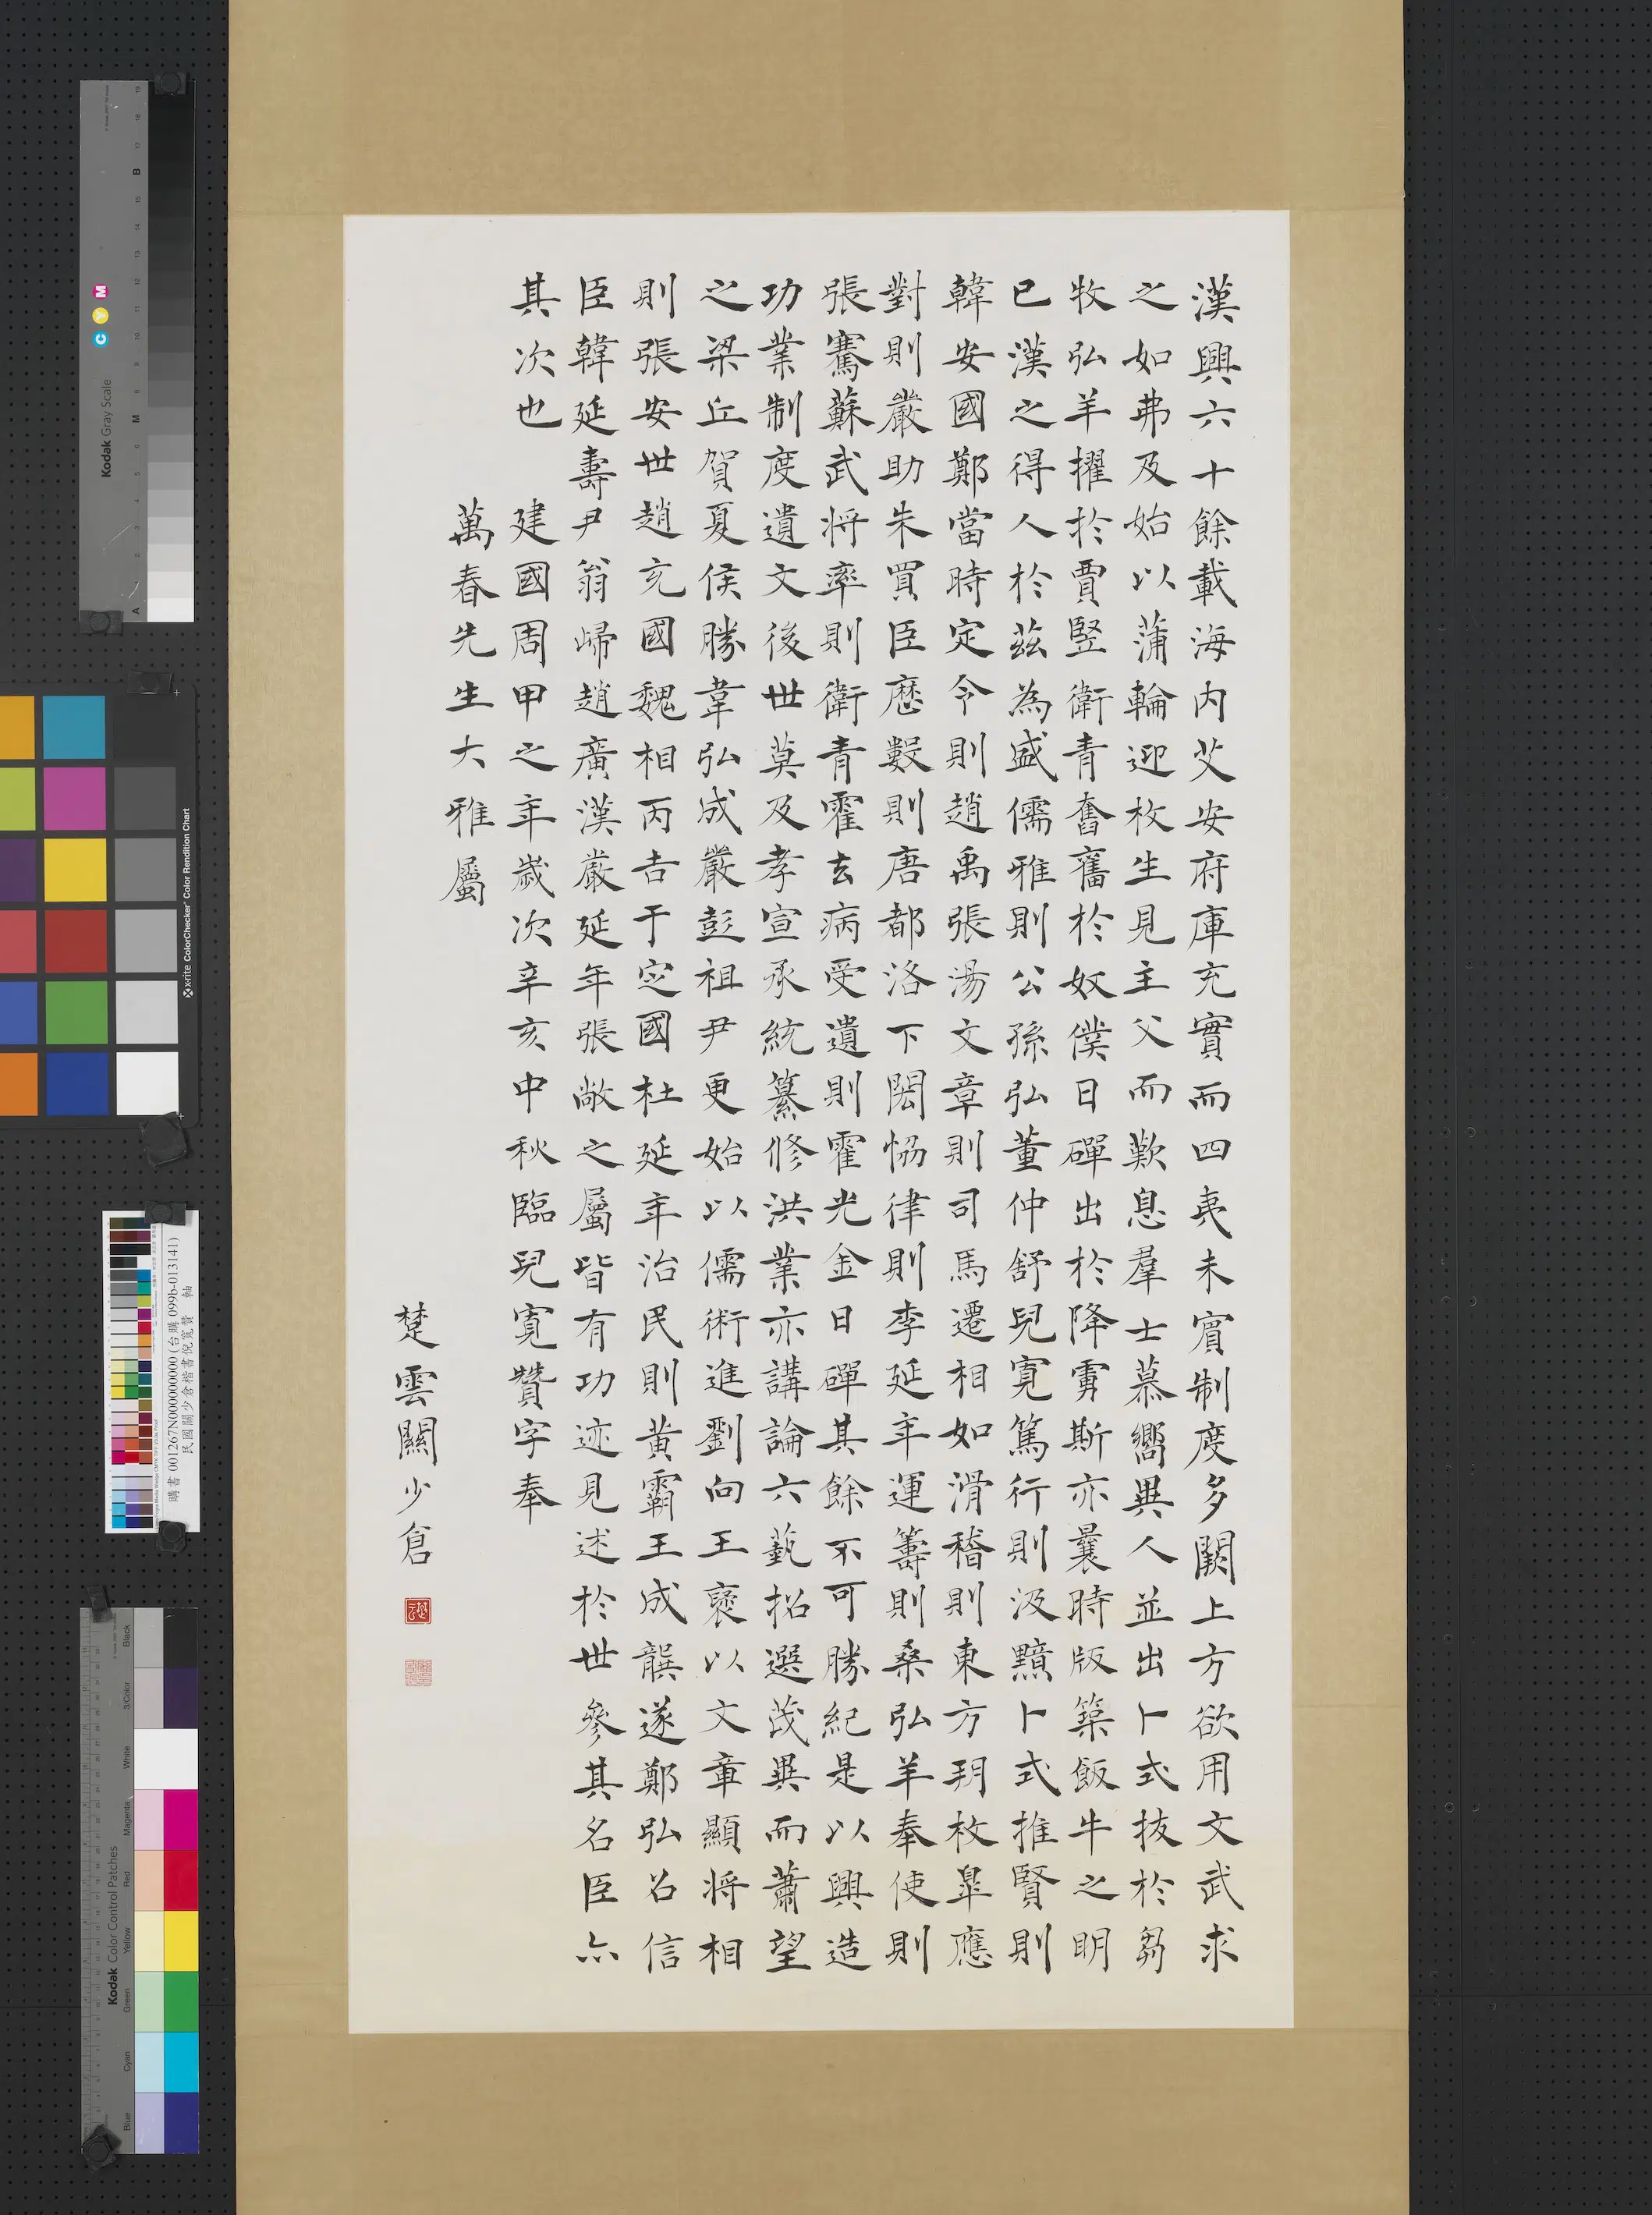 漢興六十餘載海内艾安府庫充實而四夷未賓制度多闕上方欲用文武求
之如弗及始以蒲輪迎枚生見主父而歎息羣士慕嚮異人並出卜式拔於芻
牧弘羊擢於賈豎衛青奮舊於奴僕日磾出於降虜斯亦曩時版築飯牛之明
已漢之得人於茲為盛儒雅則公孫弘董仲舒兒寬篤行則汲黯卜式推賢則
韓安國鄭當時定令則趙禹張湯文章則司馬遷相如滑稽則東方朔枚皋應
對則嚴助朱買臣歷數則唐都洛下閎恊律則李延年運籌則桑弘羊奉使則
張騫蘇武将率則衛青霍去病受遺則霍光金日磾其餘不可勝紀是以興造
功業制度遺文後世莫及孝宣承統纂修洪業亦講論六藝招選茂異而蕭望
之梁丘賀夏侯勝韋弘成嚴彭祖尹更始以儒術進劉向王褒以文章顯将相
則張安世趙充國魏相丙吉于定國杜延年治民則黃霸王成龔遂鄭弘召信
臣韓延壽尹翁歸趙廣漢嚴延年張敞之屬皆有功迹見述於世參其名臣亦
其次也
建國周甲之年歲次辛亥中秋臨兒寬贊字奉
萬春先生大雅屬
楚雲關少倉
Kodak Gray Scale
C Y M
A
M
B
x-rite ColorChecker Color Rendition Chart
購書 001267N000000000 (台購 099b-013141)
民國關少倉楷書倪寬贊 軸
Kodak Color Control Patches
Blue
Cyan
Green
Yellow
Red
Magenta
White
3/Color
Black